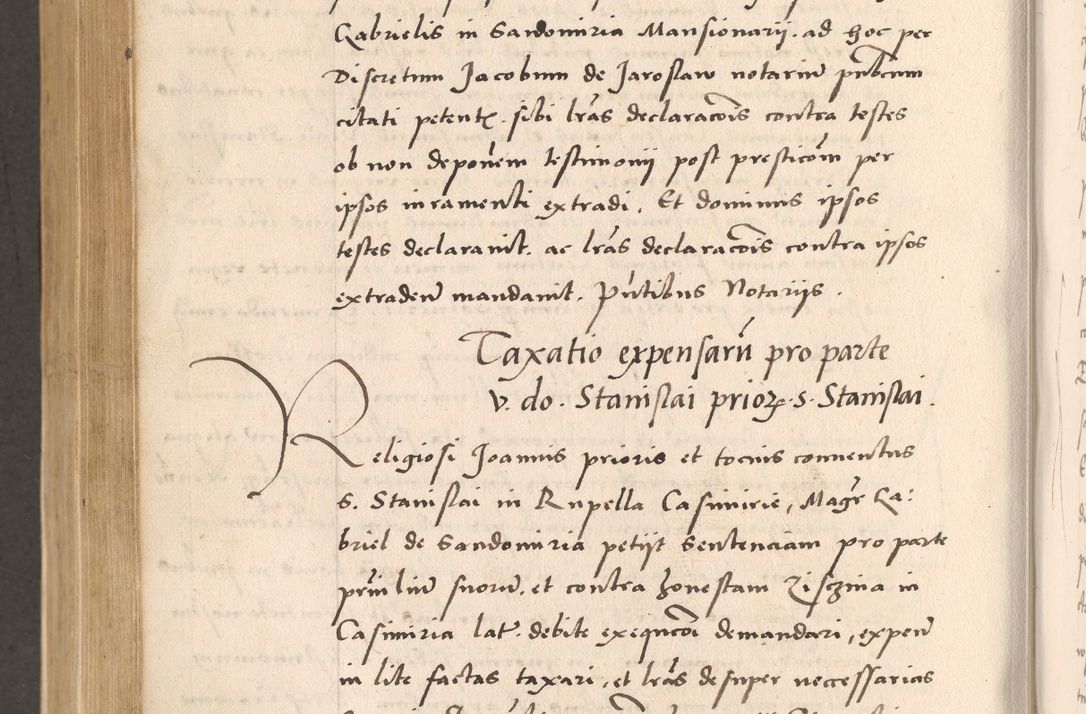 Gabrielis in Sandomiria Mansionarij. ad hoc per
Discretum Jacobum de Jaroslaw notariũ pub͠cum
citati petentꝭ sibi lr͠as declarac͠ois contra testes
ob non deposi͠nem testimonij post prestitc͠om per
ipsos iuramenti extradi. Et dominus ipsos
testes declaravit. ac lr͠as declarac͠ois contra ipsos
extradeñ mandavit. P͠ntibus Notarijs.
Taxatio expensarũ pro parte
v. do. Stanislai prioꝝ. s. Stanislai.
Religiosi Joannis prioris et tocius conventus
s. Stanislai in Rupella Casimirie, Magr͠ Ga:
briel de Sandomiria petijt sentenciam pro parte
pri͠nliũ suorũ, et contra honestam Zisczina in
Casimiria lat. debite exequc͠oi demandari, expeñ
in lite factas taxari, et lr͠as desuper necessarias